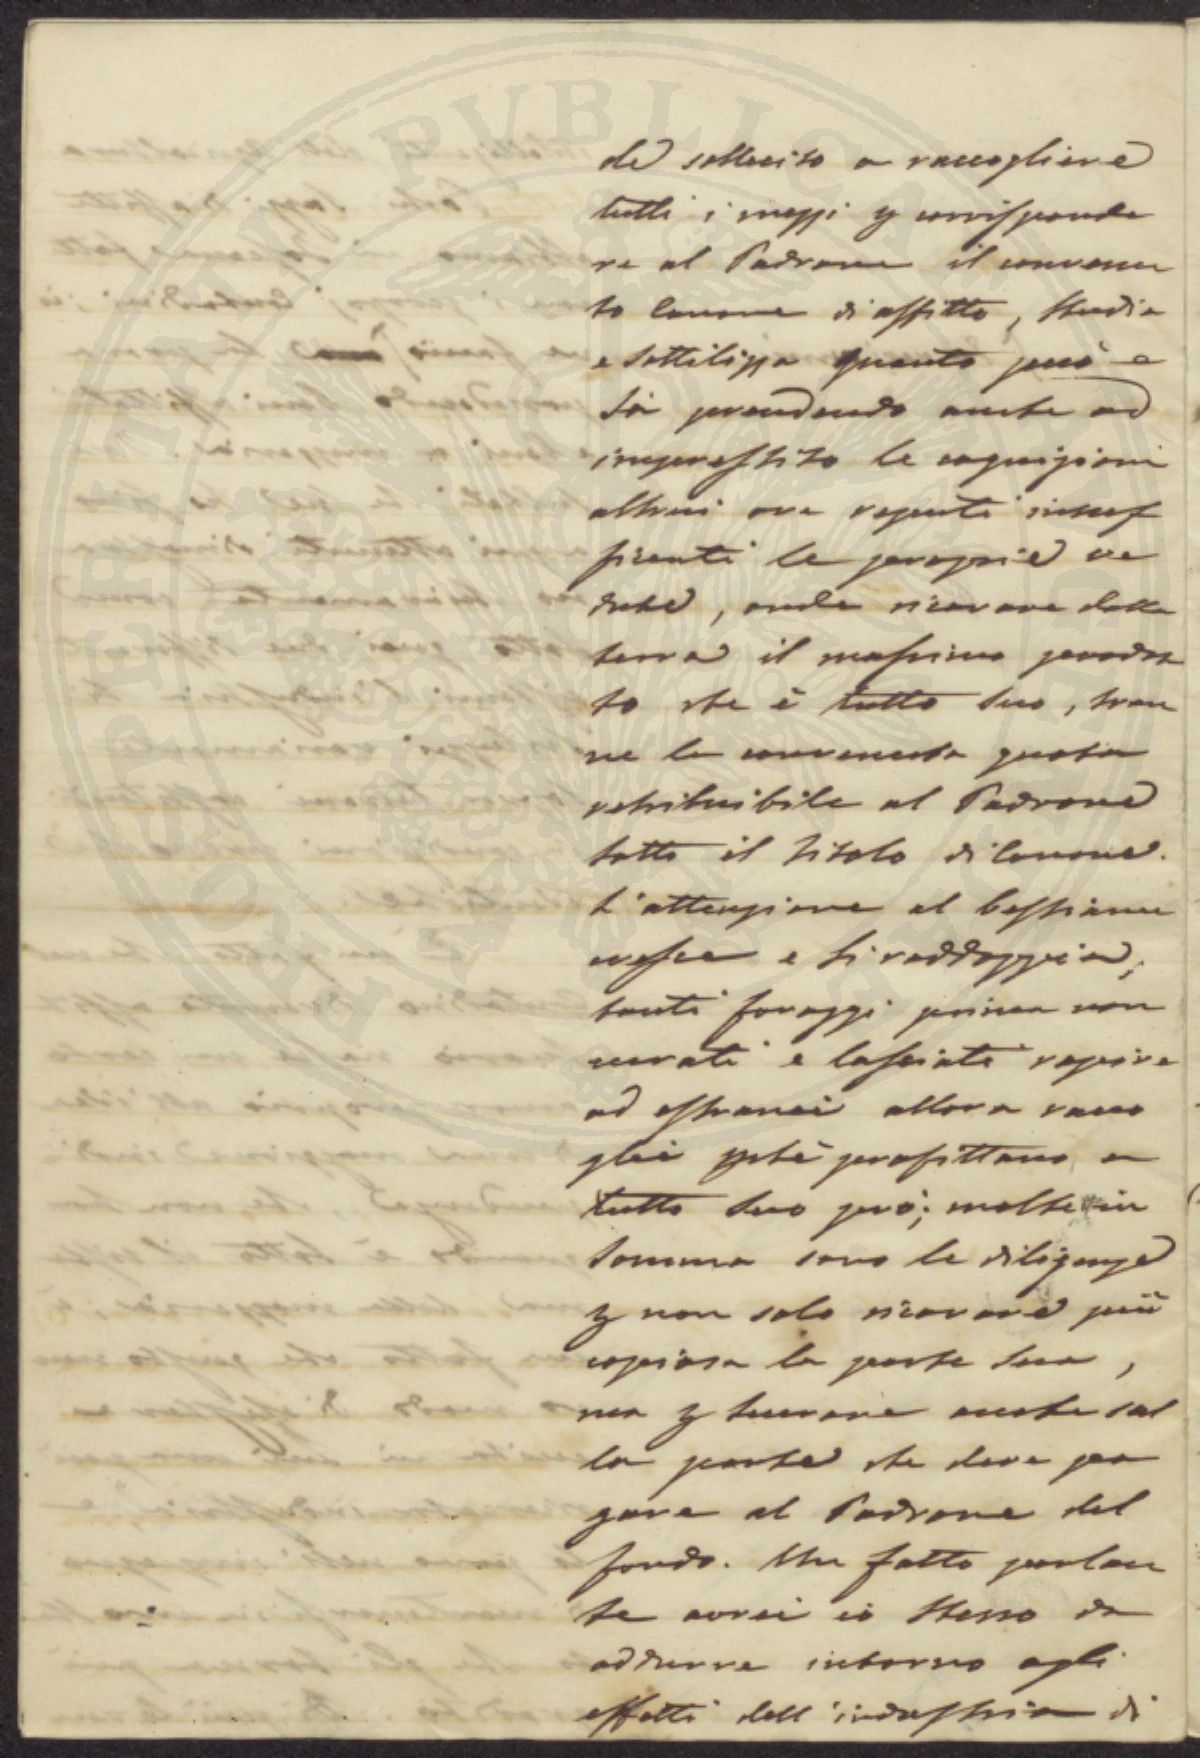 de sollecito a raccogliere
tutti i mezzi p corrisponde
re al Padrone il convenu
to Canone di affitto, studia
e sottilizza quanto può e
sà prendendo anche ad
imprestito le cognizioni
altrui ove reputi insuf
ficenti le proprie ve
dute, onde ricavare dalla
terra il massimo prodot
to che è tutto suo, tran
ne la convenuta quota
retribuibile al Padrone
sotto il titolo di Canone.
L'attenzione al bestiame
cresce e si raddoppia,
tanti foraggi prima non
curati e lasciati rapire
ad estranei allora racco
glie pchè profittano a
tutto suo prò; molte in
somma sono le diligenze
p non solo ricavare più
copiosa la parte sua,
ma p lucrare anche sul
la parte che deve pa
gare al Padrone del
fondo. Un fatto parlan
te avrei io stesso da
addurre intorno agli
effetti dell'industria di